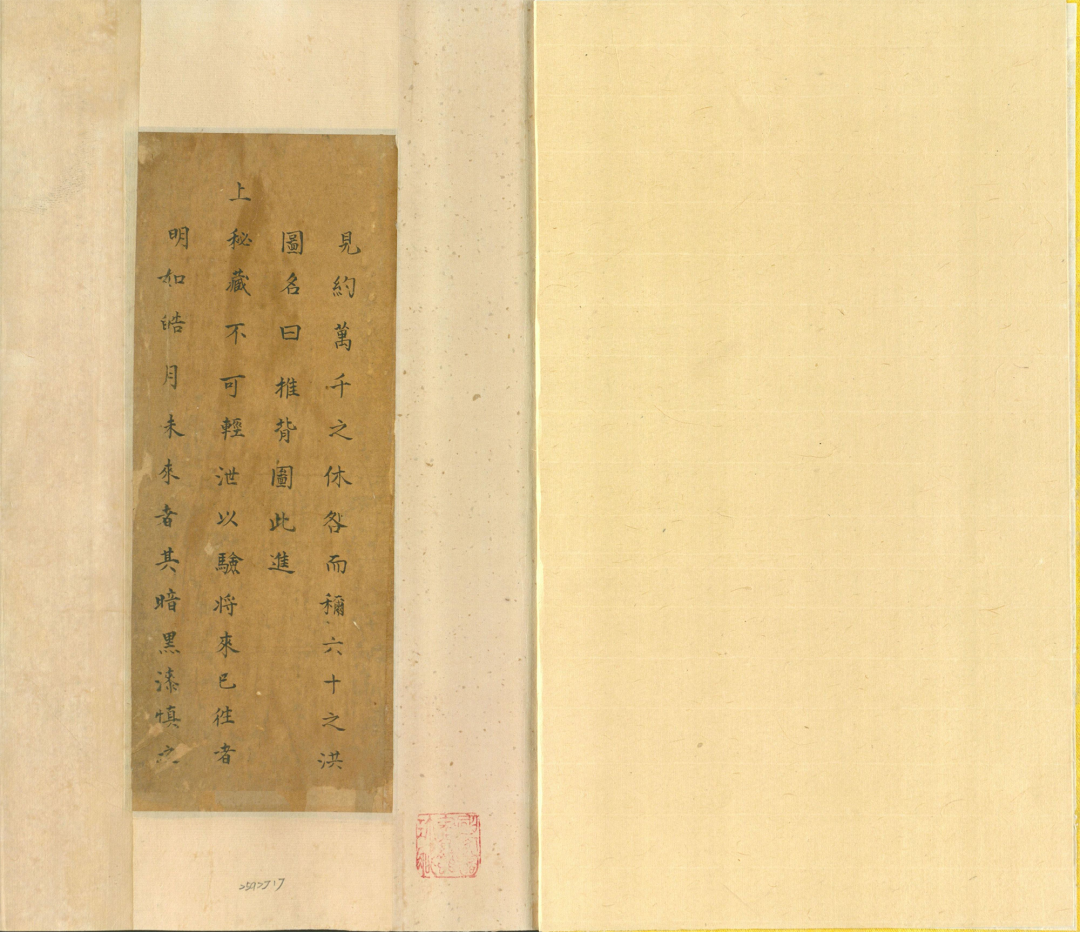 見約萬千之休咎而稱六十之洪
圖名曰推背圖此進
上秘藏不可輕泄以驗将來已往者
明如皓月未來者其暗黒漆慎之